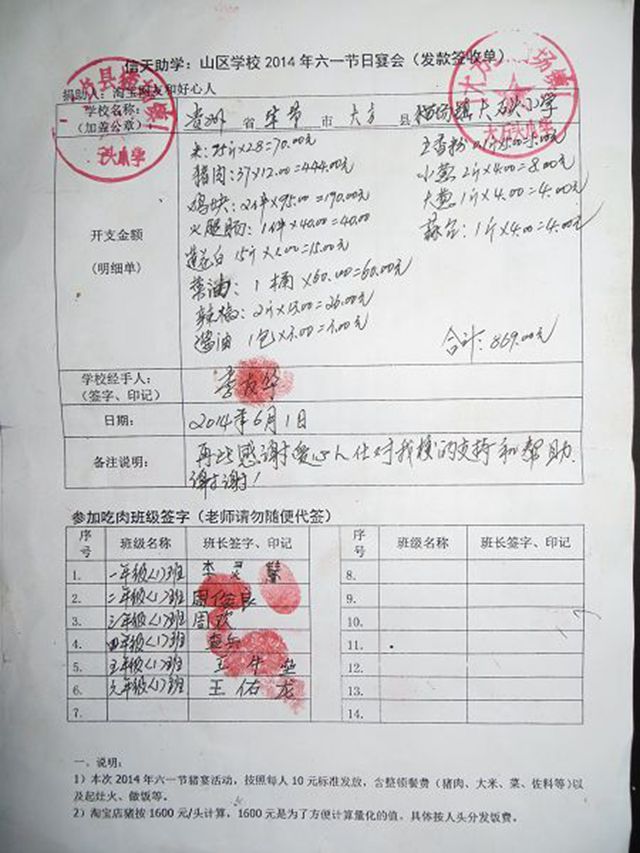 信天助学：山区学校2014年六一节日宴会（发款签收单）
捐助人：淘宝网友和好心人
学校名称：
（加盖公章）
贵州 省 毕节 市 大方 县
小学
大方
小学
开支金额
（明细单）
米：25斤×2.8=70.00元
猪肉：37×12.00=444.00元
鸡块：2件×95.00=190.00元
火腿肠：1件×40.00=40.00
莲花白 15斤×1.00=15.00元
菜油：1桶×60.00=60.00元
辣椒：2斤×13.00=26.00元
酱油 1包×3.00=3.00元
小葱 2斤×4.00=8.00元
大葱 1斤×4.00=4.00元
1斤×4.00=4.00元
合计：869.00元
学校经手人：
（签字、印记）
日期：
2014年6月1日
备注说明：
再此感谢爱心人仕对我校的支持和帮助
谢谢！
参加吃肉班级签字（老师请勿随便代签）
序号 班级名称 班长签字、印记 序号 班级名称 班长签字、印记
1. 一年级(1)班 8.
2. 二年级(1)班 9.
3. 三年级(1)班 周欢 10.
4. 四年级(1)班 11.
5. 五年级(1)班 12.
6. 六年级(1)班 王佑龙 13.
7. 14.
一、说明：
1）本次2014年六一节猪宴活动，按照每人10元标准发放，含整顿餐费（猪肉、大米、菜、佐料等）以
及起灶火、做饭等。
2）淘宝店猪按1600元/头计算，1600元是为了方便计算量化的值，具体按人头分发饭费。